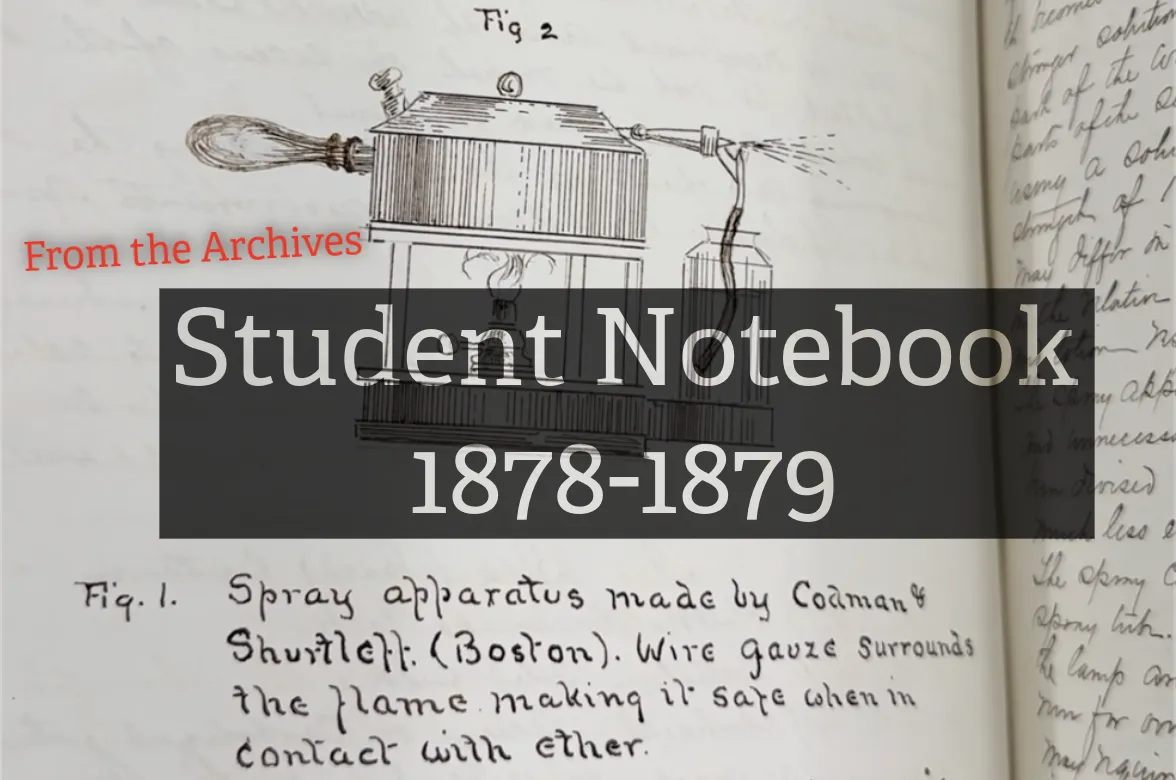 Fig 2
From the Archives
Student Notebook
1878-1879
Fig. 1. Spray apparatus made by Codman &
Shurtleff. (Boston). Wire gauze surrounds
the flame making it safe when in
contact with ether.
it becomes
stronger solution
part of the
parts of the
using a solu
strength of
may differ in
the relation
unnecess
devised
much less
The spray
spray tube
the lamp an
run for
may requir